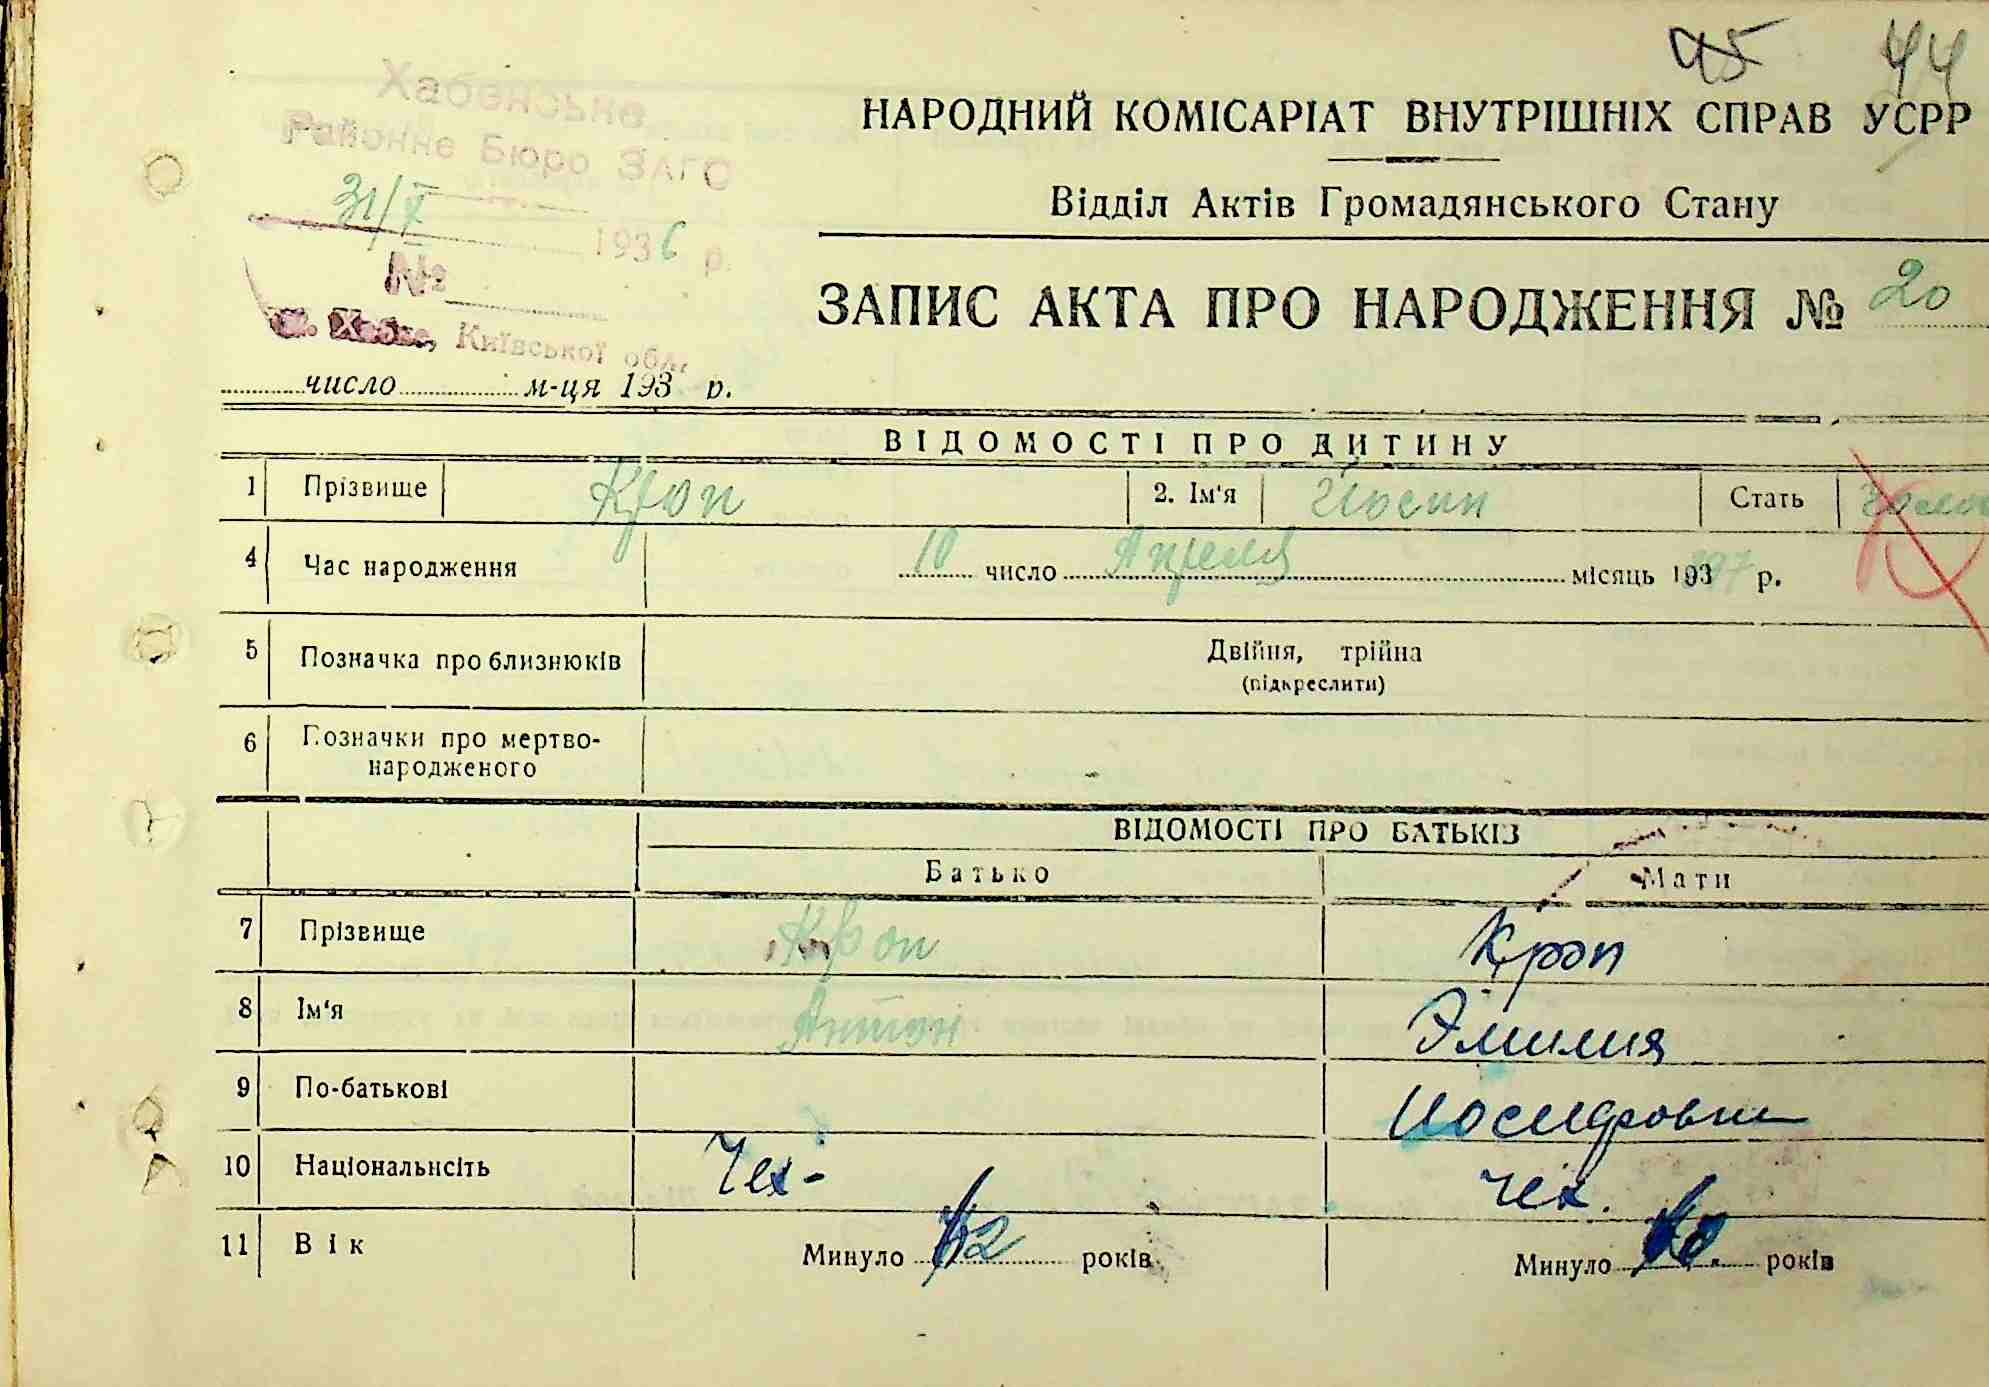 45 44
Хабенське
Районне Бюро ЗАГС
31/X
1936 р.
№
Київської обл.
НАРОДНИЙ КОМІСАРІАТ ВНУТРІШНІХ СПРАВ УСРР
Відділ Актів Громадянського Стану
ЗАПИС АКТА ПРО НАРОДЖЕННЯ № 20
число м-ця 193 р.
ВІДОМОСТІ ПРО ДИТИНУ
1 Прізвище Кроп 2. Ім'я Йосип Стать
4 Час народження 10 число Апреля місяць 193 р.
5 Позначка про близнюків Двійня, трійна
(підкреслити)
6 Позначки про мертво-
народженого
ВІДОМОСТІ ПРО БАТЬКІВ
Батько Мати
7 Прізвище Кроп Кроп
8 Ім'я Антон Эмилия
9 По-батькові Иосифовна
10 Національність Чех- чех.
11 Вік Минуло років Минуло років